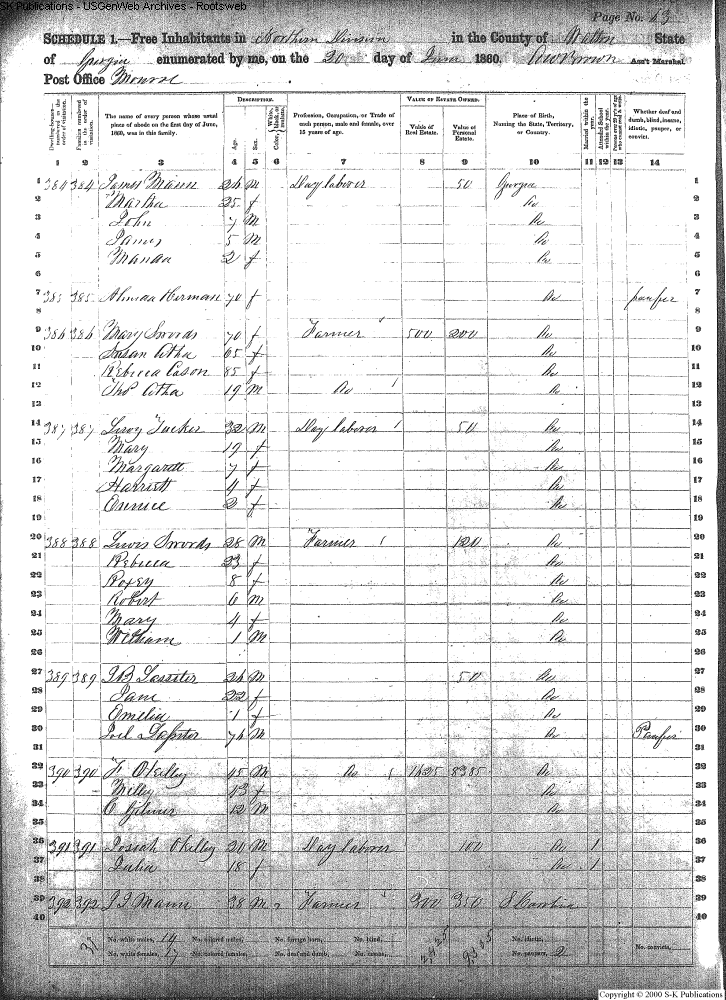 SK Publications - USGenWeb Archives - Rootsweb
Page No. 53
SCHEDULE 1.—Free Inhabitants in Northern Division in the County of Walton State
of Georgia enumerated by me, on the 20 day of June 1860. Ass't Marshal.
Post Office Monroe
Dwelling-houses—numbered in the order of visitation.
Families numbered in the order of visitation.
The name of every person whose usual place of abode on the first day of June, 1860, was in this family.
DESCRIPTION.
Age.
Sex.
Color, White, black, or mulatto.
Profession, Occupation, or Trade of each person, male and female, over 15 years of age.
VALUE OF ESTATE OWNED.
Value of Real Estate.
Value of Personal Estate.
Place of Birth, Naming the State, Territory, or Country.
Married within the year.
Attended School within the year.
Whether deaf and dumb, blind, insane, idiotic, pauper, or convict.
1 2 3 4 5 6 7 8 9 10 11 12 13 14
1 384 384 James Mann 24 M Day laborer 50 Georgia 1
2 Martha 25 f Do 2
3 John 7 M Do 3
4 James 5 M Do 4
5 2 f Do 5
6 6
7 385 385 Herman 70 f Do pauper 7
8 8
9 386 386 Mary Swords 70 f Farmer 500 200 Do 9
10 Susan Atha 65 f Do 10
11 Rebecca Cason 85 f Do 11
12 Thos Atha 19 M Do Do 12
13 13
14 387 387 Leroy Tucker 32 M Day laborer 50 Do 14
15 Mary 19 f Do 15
16 Margarett 7 f Do 16
17 Harriett 4 f Do 17
18 2 f Do 18
19 19
20 388 388 Lewis Swords 28 M Farmer 120 Do 20
21 Rebecca 23 f Do 21
22 Roxey 8 f Do 22
23 Robert 6 M Do 23
24 Mary 4 f Do 24
25 William 1 M Do 25
26 26
27 389 389 J B Lasseter 24 M 50 Do 27
28 Jane 22 f Do 28
29 Omelia 1 f Do 29
30 Joel 74 M Do Pauper 30
31 31
32 390 390 F OKelley 45 M Do 1425 8385 Do 32
33 Milly 43 f Do 33
34 12 M Do 34
35 35
36 391 391 Josiah OKelley 20 M Day laborer 100 Do 1 36
37 Julia 18 f Do 1 37
38 38
39 392 392 Mann 38 M Farmer 300 350 S Carolina 39
40 40
No. white males, 14 No. colored males, No. foreign born, No. blind, No. idiotic,
No. white females, 17 No. colored females, No. deaf and dumb, No. insane, No. paupers, 2 No. convicts,
Copyright © 2000 S-K Publications